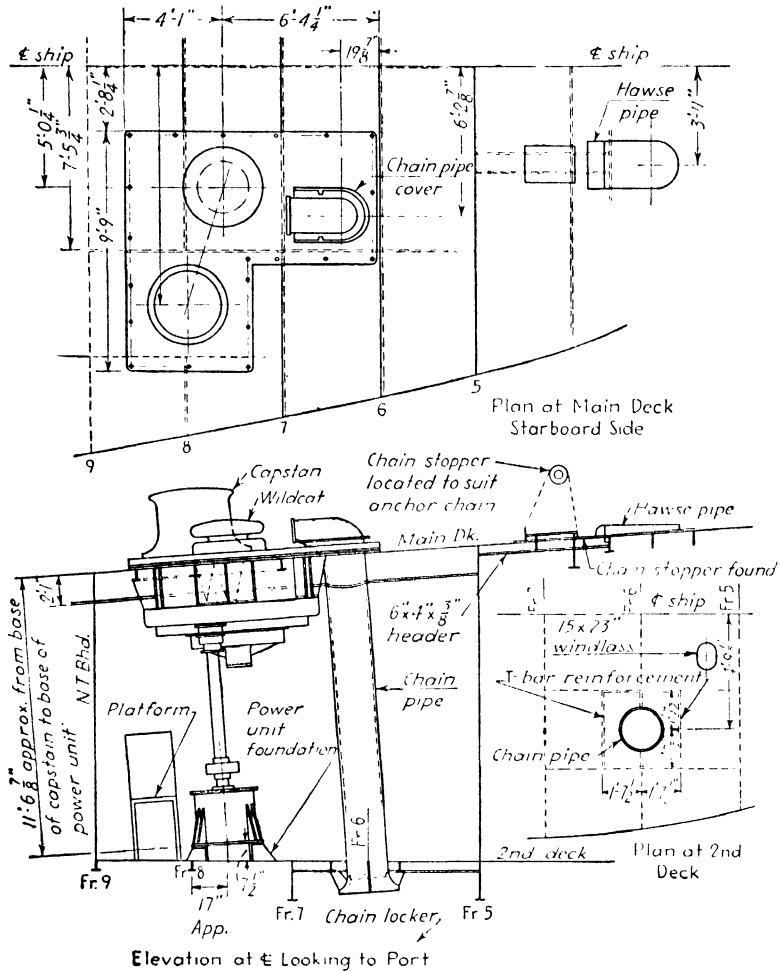 4'-1"
6'-4 1/4"
19 7/8"
℄ ship
℄ ship
5'-0 1/4"
7'-5 3/4"
2'-8 1/4"
9'-9"
6'-2 7/8"
Hawse
pipe
3'-11"
Chain pipe
cover
5
6
7
8
9
Plan at Main Deck
Starboard Side
Capstan
Wildcat
Chain stopper
located to suit
anchor chain
Hawse pipe
Main Dk.
Chain stopper found
2'-1"
6" x 4" x 3/8"
header
℄ ship
Fr 6
Fr 5
15 x 23"
windlass
T-bar reinforcement
Chain pipe
1'-7 1/2"
1'-7 1/2"
11'-6 7/8" approx. from base
of capstain to base of
power unit
N T Bhd.
Platform
Power
unit
foundation
Chain
pipe
Fr 6
2nd deck
Plan at 2nd
Deck
Fr. 9
Fr 8
7 1/2"
17"
App.
Fr. 7
Chain locker
Fr 5
Elevation at ℄ Looking to Port